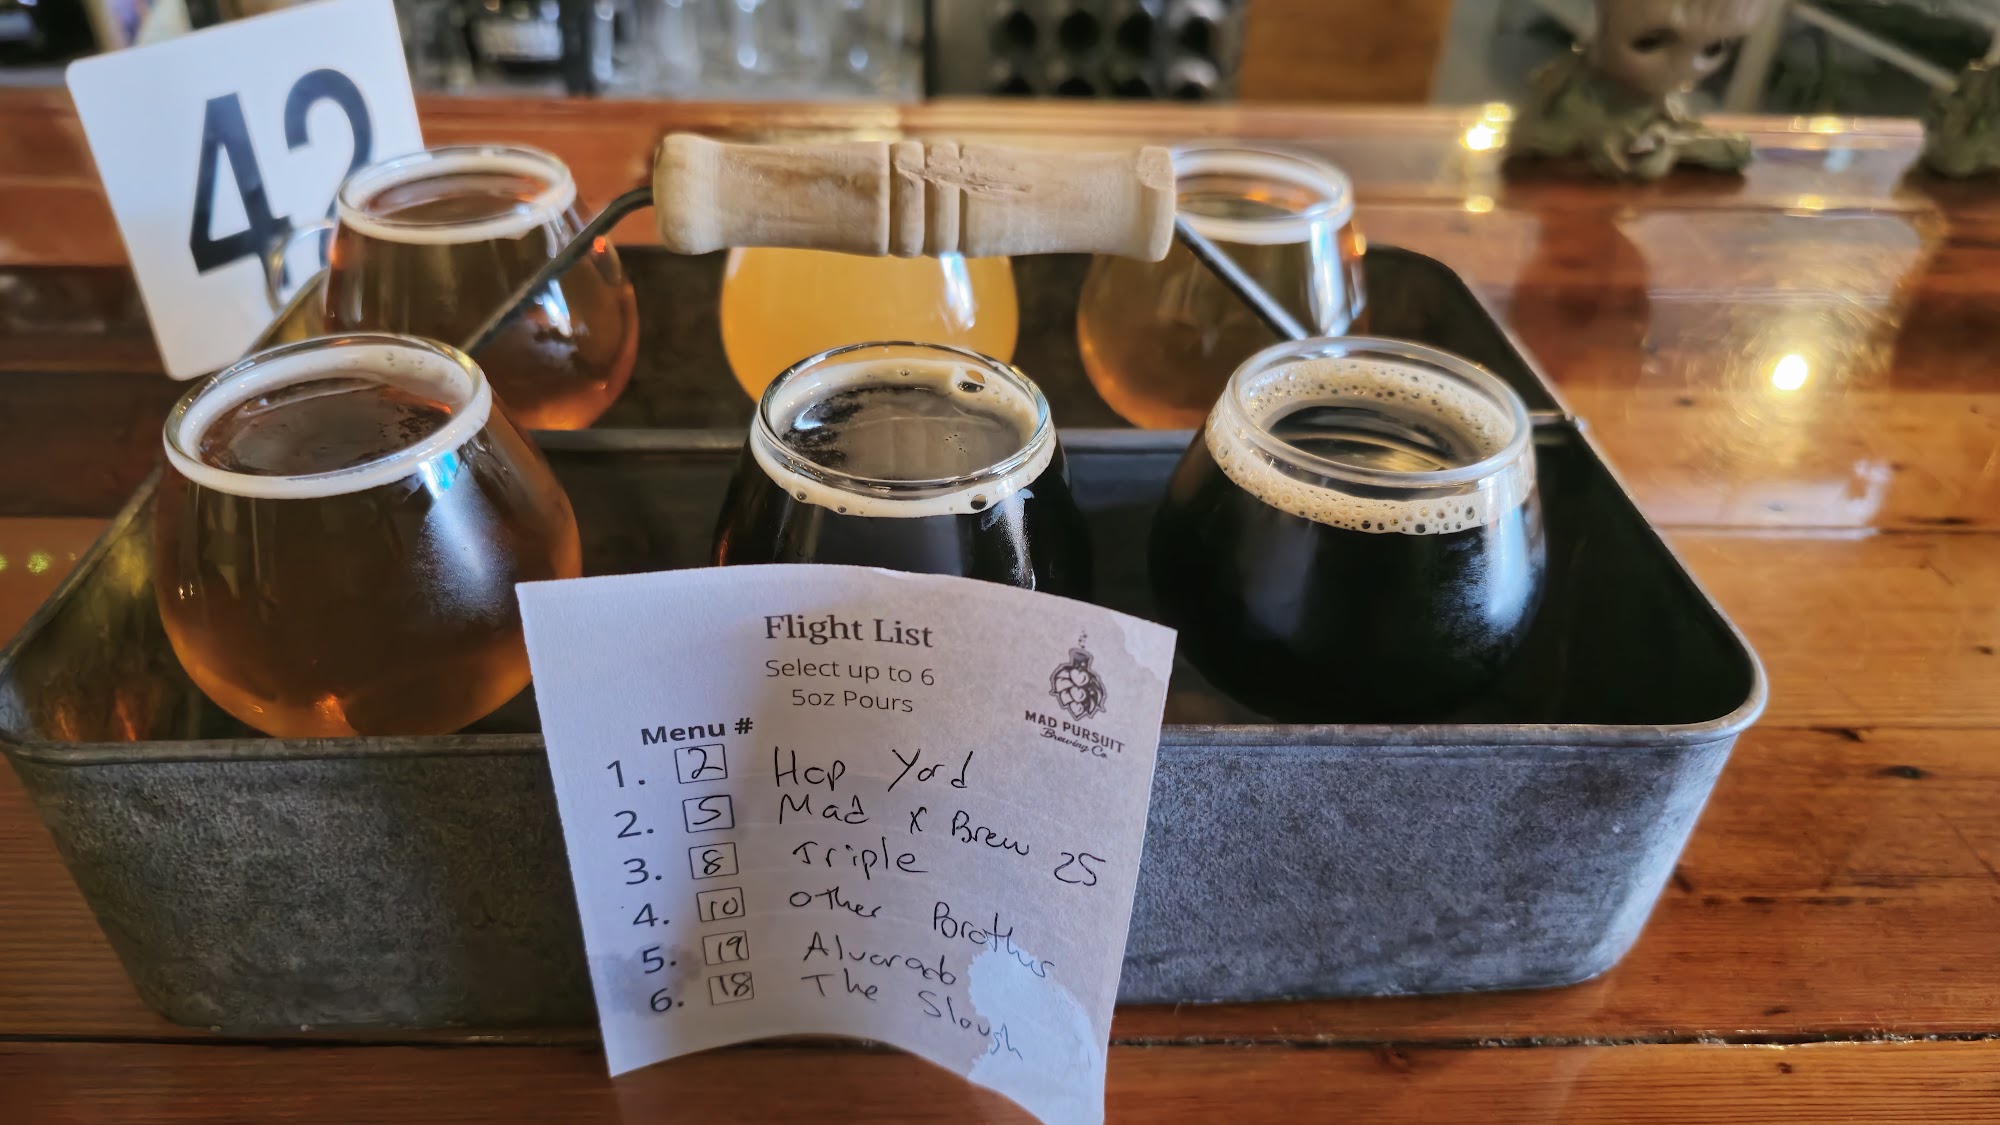 42
Flight List
Select up to 6
5oz Pours
MAD PURSUIT
Brewing Co.
Menu #
1. 2 Hop Yard
2. 5 Mad x Brew 25
3. 8 Triple
4. 10 Other
5. 19 Alvarado
6. 18 The Slough